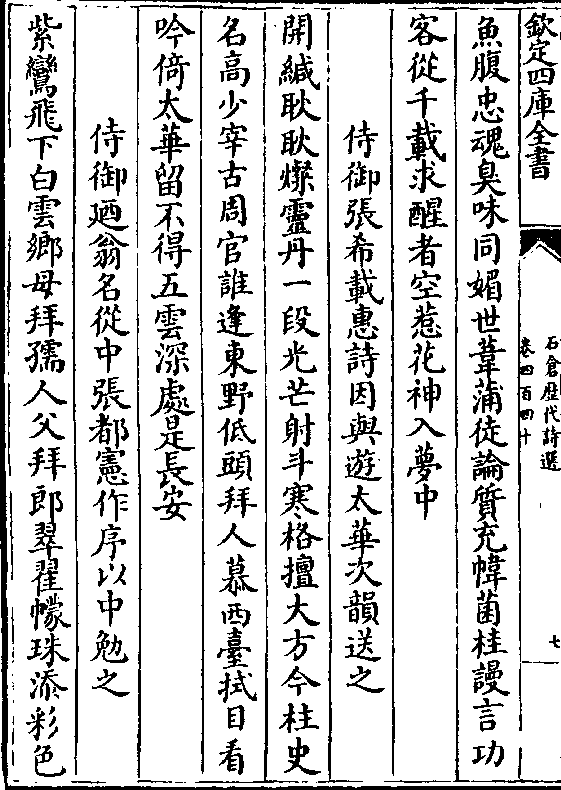 欽定四庫全書
石倉歴代詩選
卷四百四十
七
魚腹忠魂臭味同媚世葦蒲徒論質充幃菌桂謾言功
客從千載求醒者空惹花神入夢中
侍御張希載惠詩因與遊太華次韻送之
開緘耿耿燦靈丹一段光芒射斗寒格擅大方今柱史
名高少宰古周官誰逢東野低頭拜人慕西臺拭目看
吟倚太華留不得五雲深處是長安
侍御廼翁名從中張都憲作序以中勉之
紫鸞飛下白雲鄉母拜孺人父拜郎翠翟幪珠添彩色